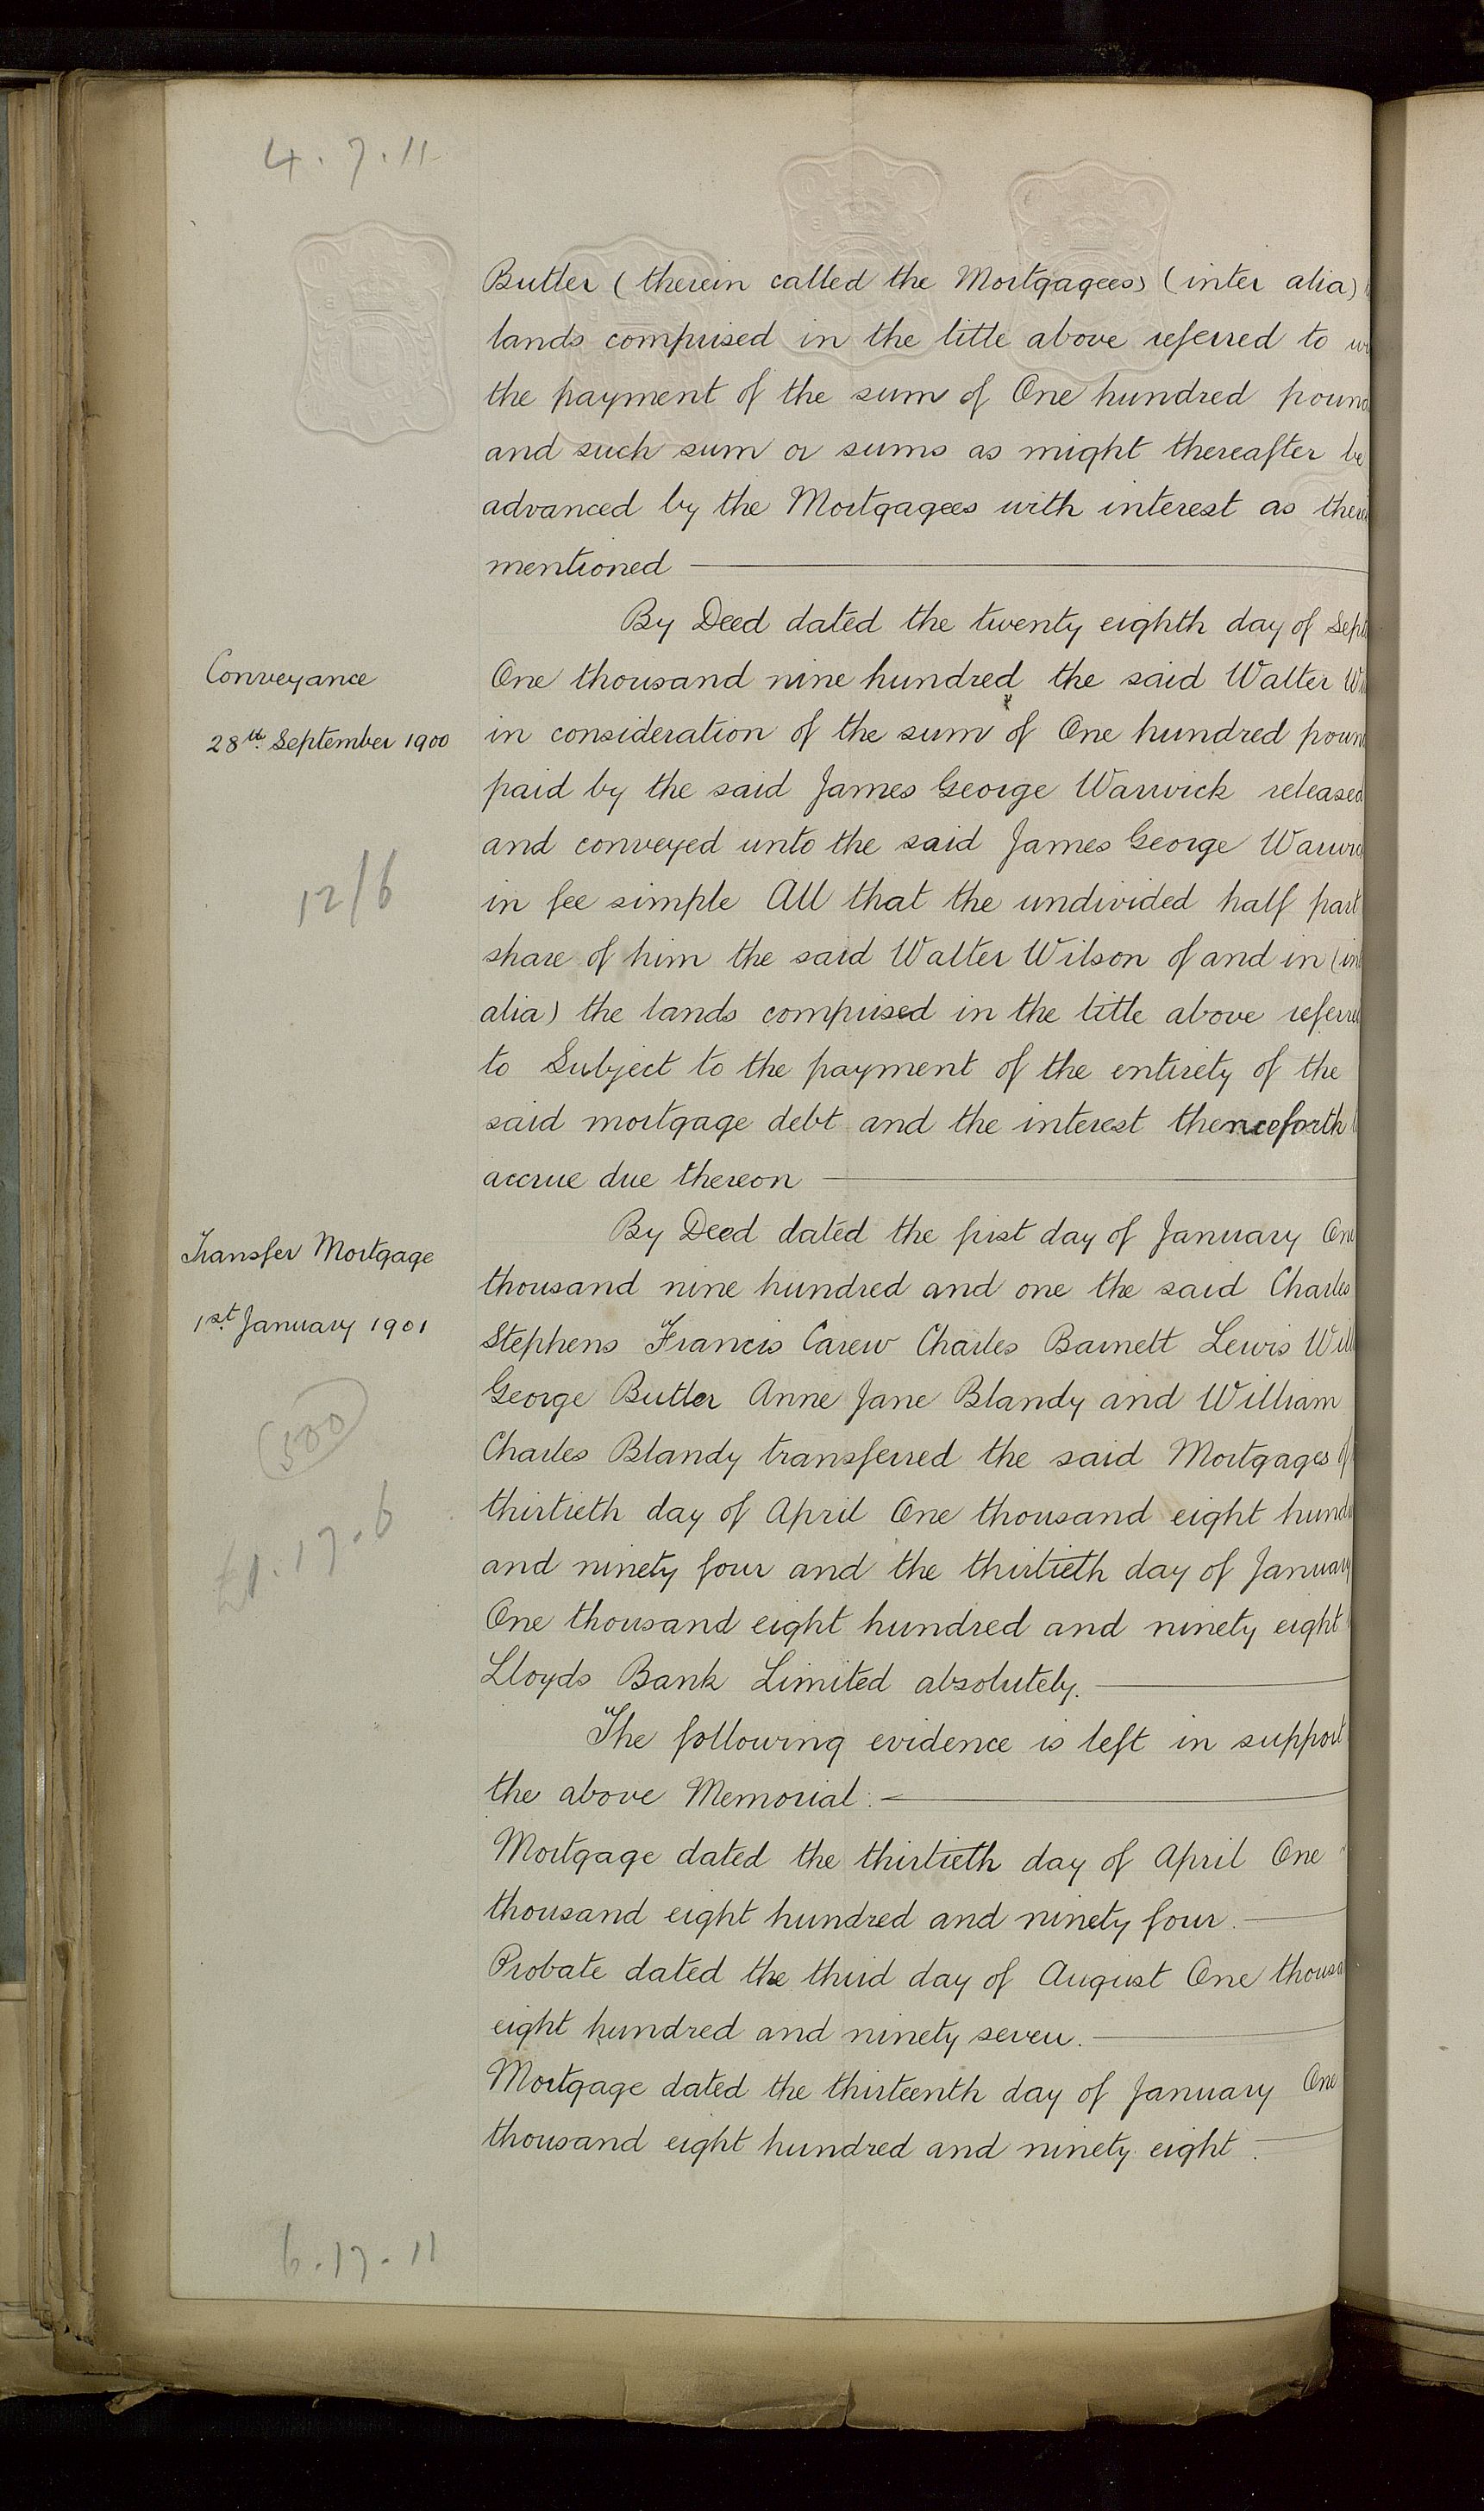 4 . 7 . 11
Butler (therein called the Mortgagees) (inter alia)
lands comprised in the title above referred to
the payment of the sum of One hundred poun
and such sum or sums as might thereafter be
advanced by the Mortgagees with interest as there
mentioned
By Deed dated the twenty eighth day of Sept
Conveyance
One thousand nine hundred the said Walter Wi
28th September 1900
in consideration of the sum of One hundred poun
paid by the said James George Warwick released
and conveyed unto the said James George Warwic
12/6
in fee simple All that the undivided half part
share of him the said Walter Wilson of and in (in
alia) the lands comprised in the title above referre
to Subject to the payment of the entirety of the
said mortgage debt and the interest thenceforth
accrue due thereon
By Deed dated the first day of January One
Transfer Mortgage
thousand nine hundred and one the said Charles
1st January 1901
Stephens Francis Carew Charles Barnett Lewis Will
George Butler Anne Jane Blandy and William
(500)
Charles Blandy transferred the said Mortgages of
thirtieth day of April One thousand eight hund
£1 . 17 . 6
and ninety four and the thirtieth day of January
One thousand eight hundred and ninety eight
Lloyds Bank Limited absolutely.
The following evidence is left in support
the above Memorial :
Mortgage dated the thirtieth day of April One
thousand eight hundred and ninety four.
Probate dated the third day of August One thousa
eight hundred and ninety seven.
Mortgage dated the thirteenth day of January One
thousand eight hundred and ninety eight.
6 . 17 . 11